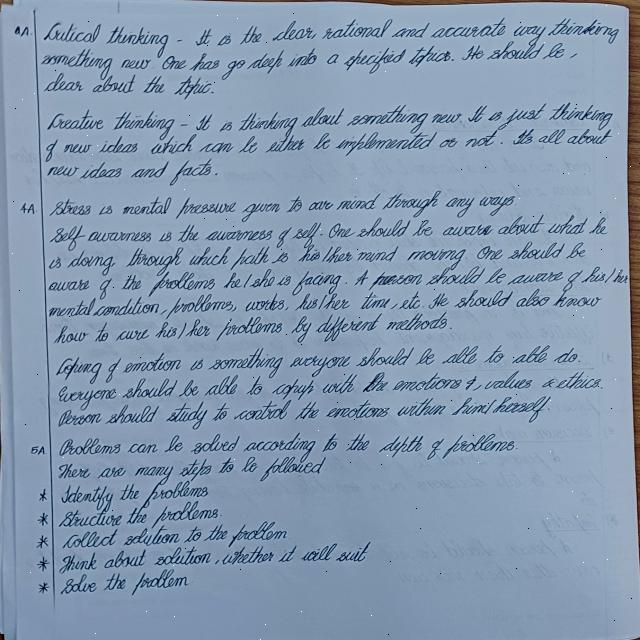 Critical thinking - It is the clear, rational and accurate way thinking
something new One has go deep into a specified topic. He should be,
clear about the topic.
Creative thinking - It is thinking about something new. It is just thinking
of new ideas which can be either be implemented or not. Its all about
new ideas and facts.
4A Stress is mental pressure given to our mind through any ways
Self-awarness is the awarness of self. One should be aware about what he
is doing, through which path is his/her mind moving. One should be
aware of the problems he/she is facing. A person should be aware of his/her
mental condition, problems, works, his/her time, etc. He should also know
how to cure his/her problems by different methods.
Coping of emotion is something everyone should be able to able do.
Everyone should be able to with the emotions &, values & ethics.
Person should study to control the emotions within him/herself.
5A Problems can be solved according to the depth of problems.
There are many steps to be followed
* Identify the problems
* Structure the problems.
* Collect solution to the problem
* Think about solution, whether it will suit
* Solve the problem